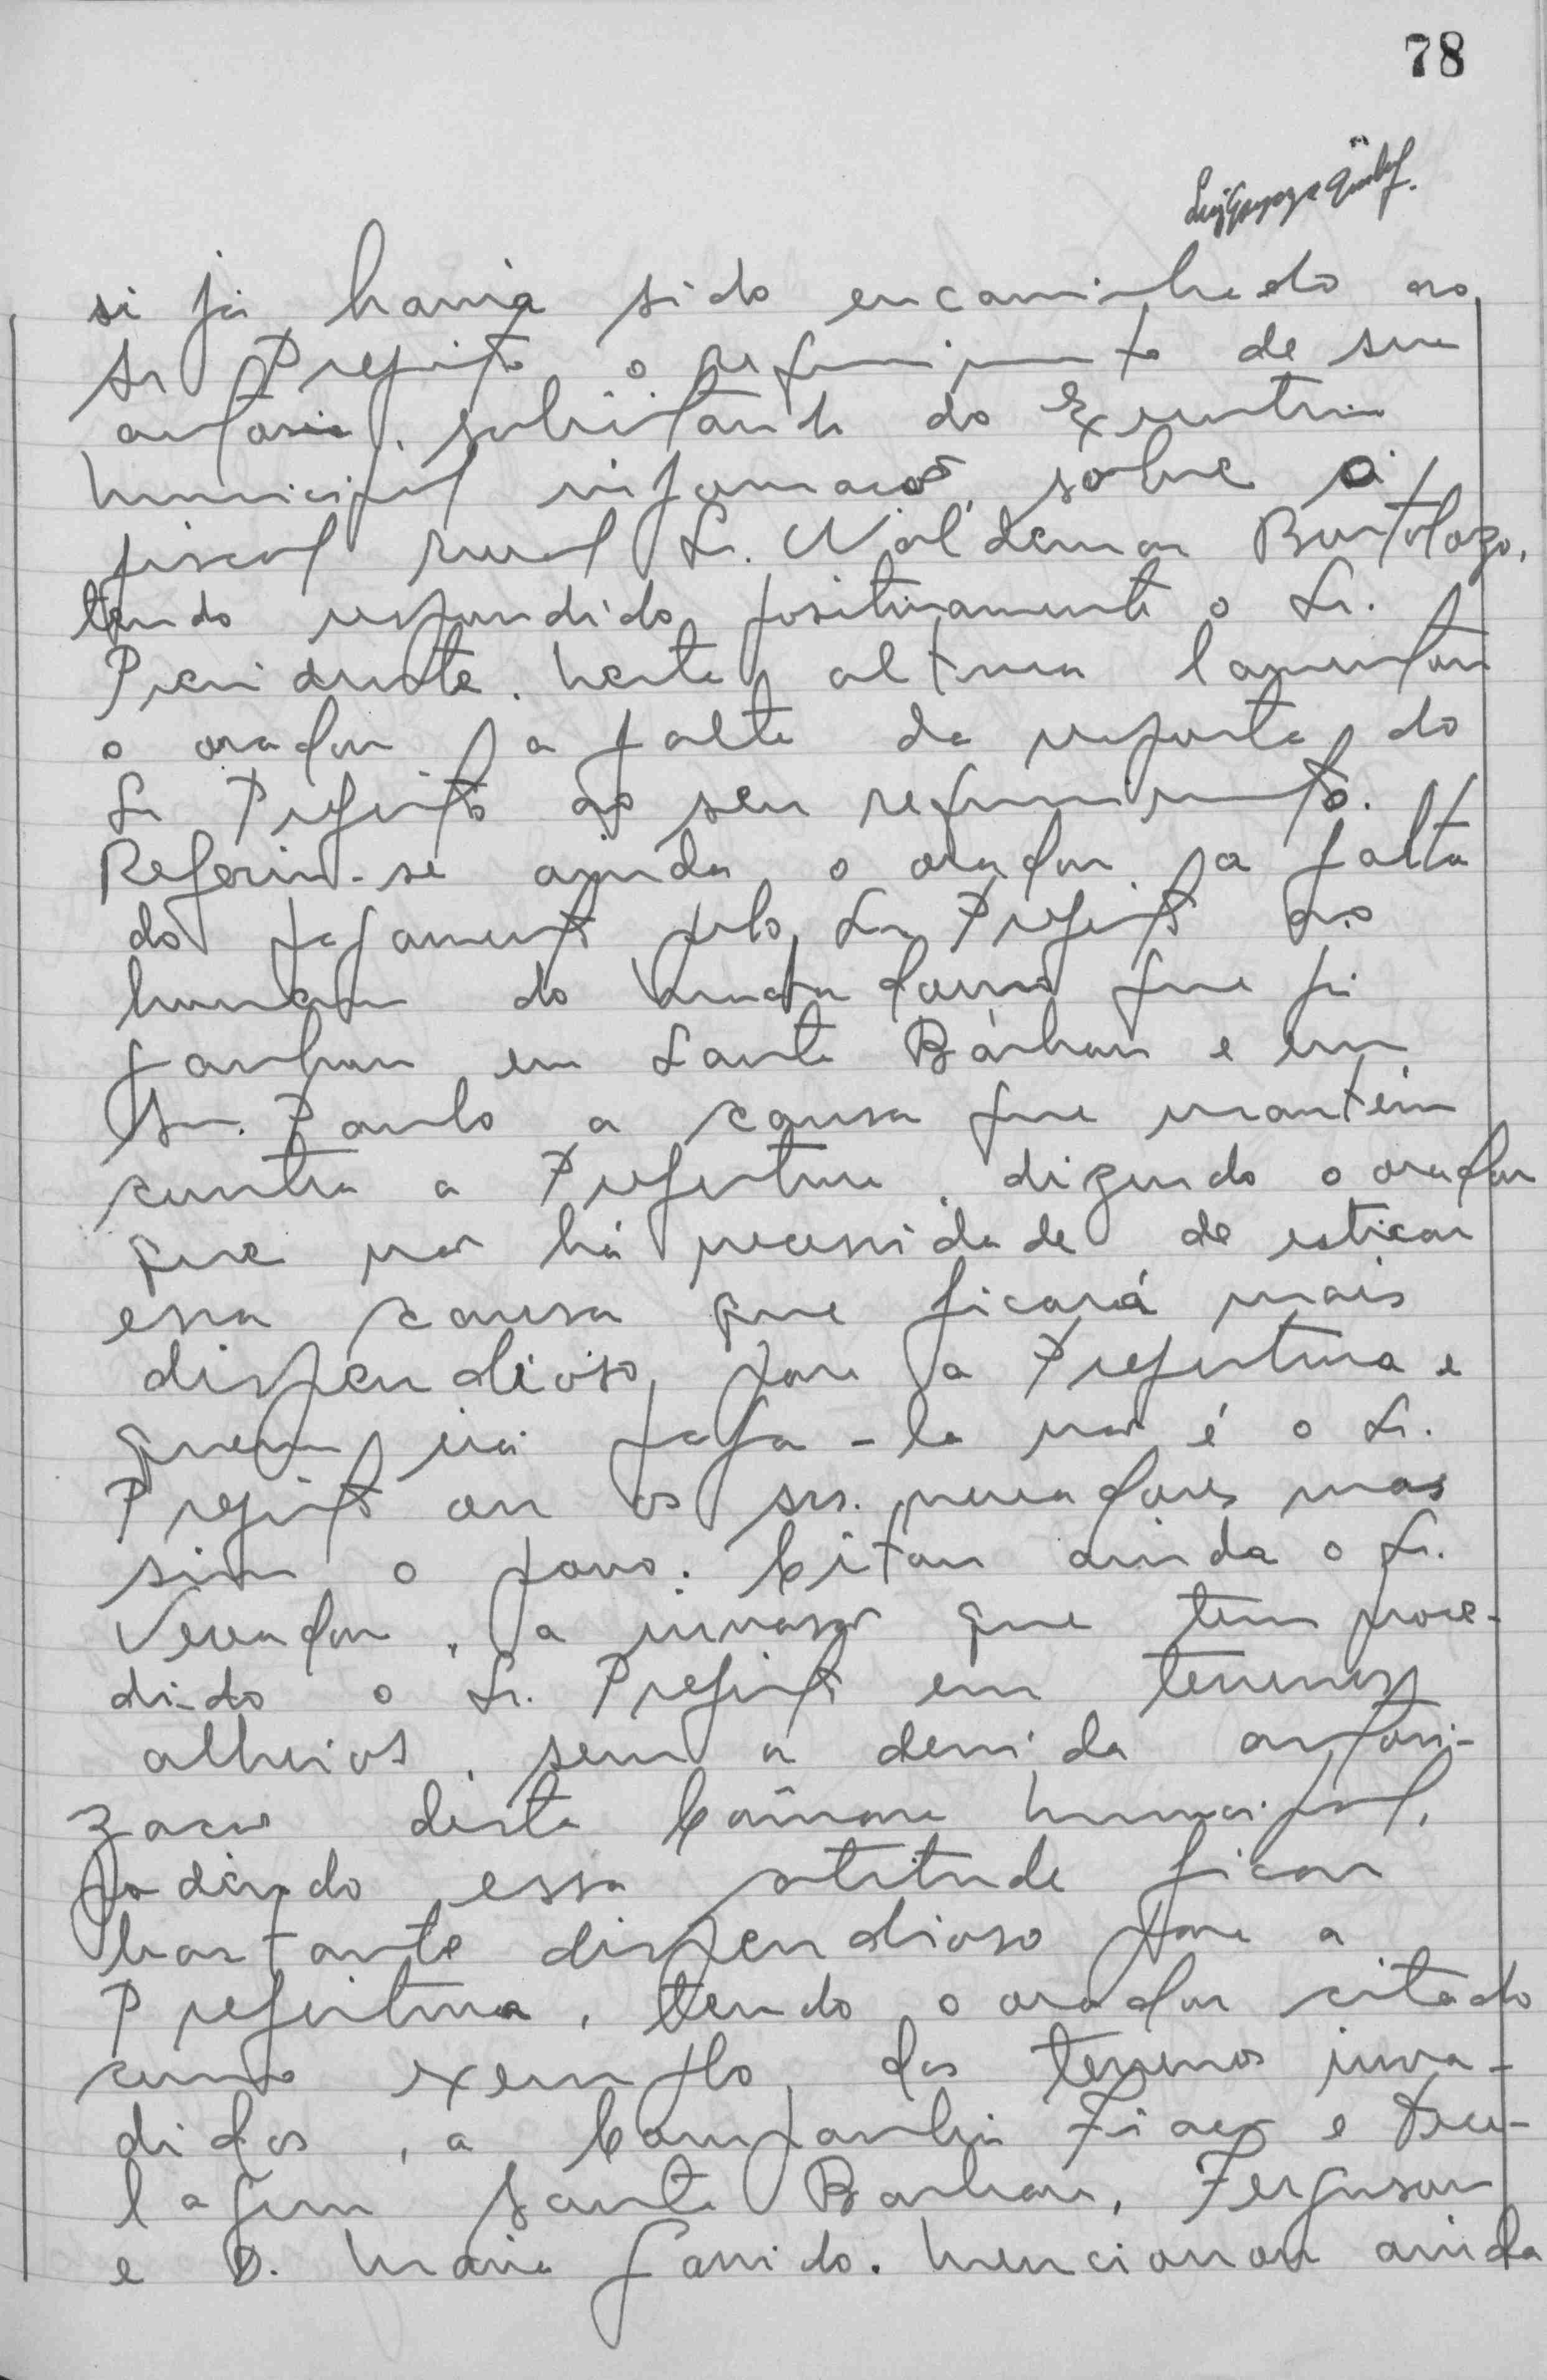 78
si já havia sido encaminhado ao
Sr Prefeito o requerimento de sua
autoria, solicitando do Executivo
Municipal informação sobre o
fiscal rural Sr. Waldemar Bortolozo,
tendo respondido positivamente o Sr.
Presidente. Nesta altura lamentou
o orador a falta da resposta do
Sr Prefeito ao seu requerimento.
Referiu-se ainda o orador, a falta
do pagamento pelo Sr Prefeito ao
do que já
ganhou em Santa Bárbara e em
São Paulo a causa que mantém
contra a Prefeitura, dizendo o orador
que não há necessidade de esticar
essa causa que ficará mais
dispendioso para a Prefeitura e
quem irá paga-la não é o Sr.
Prefeito ou os srs. vereadores mas
sim o povo. Citou ainda o Sr.
Vereador, a invasão que tem proce-
dido o Sr. Prefeito em terrenos
alheios, sem a devida autori-
zação desta Câmara Municipal,
podendo essa atitude ficar
bastante dispendioso para a
Prefeitura, tendo o orador citado
como exemplo dos terrenos inva-
didos, a Companhia Fiação e Tece-
lagem Santa Barbara, Ferguson
e D. Maria Garrido. Mencionou ainda